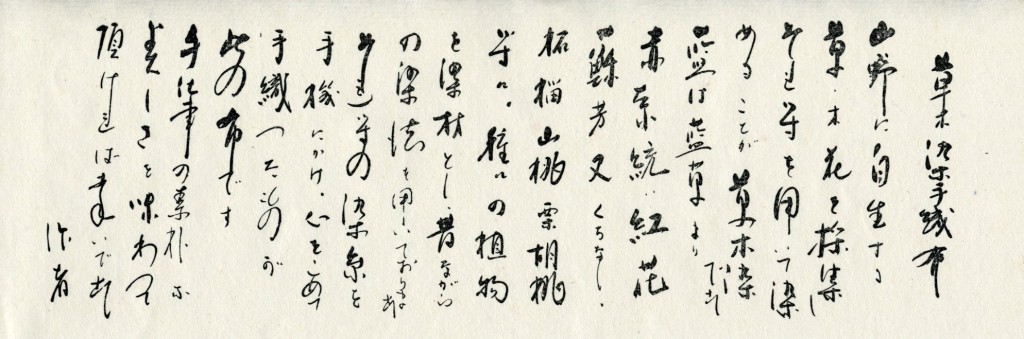 草木染手織布
山野に自生する
草・木・花を採集し
それ等を用いて染
めることが草木染です
藍は藍草より
赤系統は紅花
蘇芳又くちなし、
柘榴山桃栗胡桃
等々。種々の植物
を染材とし、昔ながら
の染法を用いております
それ等の染糸を
手機にかけ、心をこめて
手織つたのが
此の布です
手仕事の素朴な
美しさを味わって
頂ければ幸いです
作者